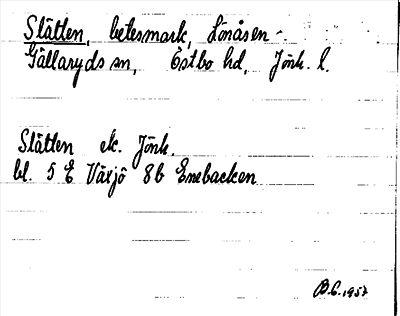 Slätten, betesmark, Lönåsen -
Gällaryds sn, Östbo hd, Jönk. l.
Slätten ek. Jönk.
bl. 5 E Växjö 8b Enebacken
B.G. 1957